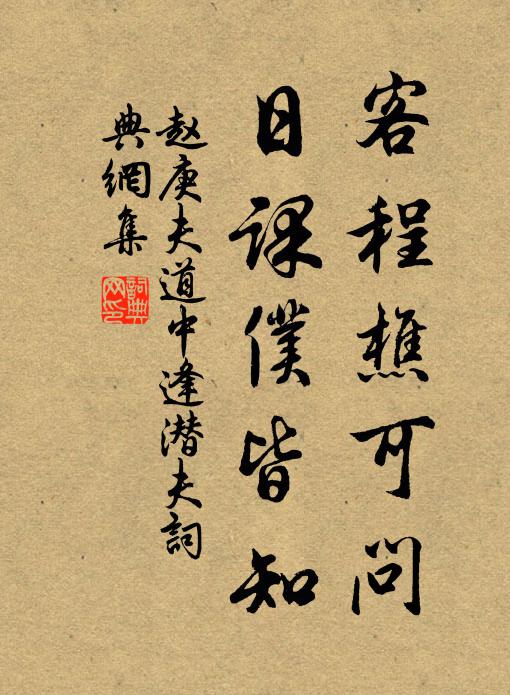 客程樵可問
日課僕皆知
赵庚夫道中逢潜夫詞
典網集
詞典
网印